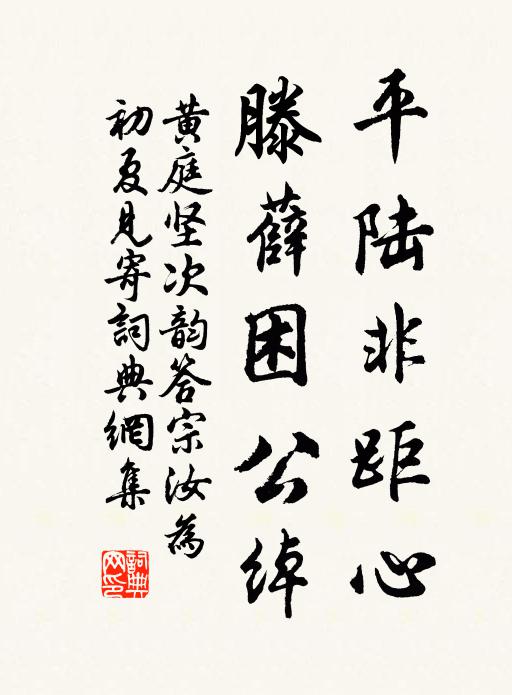 平陆非距心
滕薛困公绰
黄庭坚次韵答宗汝為
初夏見寄詞典網集
詞典
网印